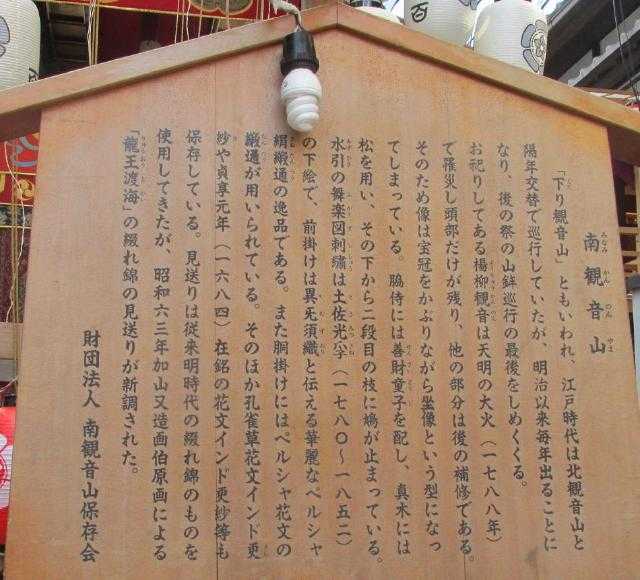 南観音山
「下り観音山」ともいわれ、江戸時代は北観音山と
隔年交替で巡行していたが、明治以来毎年出ることに
なり、後の祭の山鉾巡行の最後をしめくくる。
お祀りしてある楊柳観音は天明の大火(一七八八年)
で罹災し頭部だけが残り、他の部分は後の補修である。
そのため像は宝冠をかぶりながら坐像という型になっ
てしまっている。脇侍には善財童子を配し、真木には
松を用い、その下から二段目の枝に鳩が止まっている。
水引の舞楽図刺繍は土佐光孚(一七八〇〜一八五二)
の下絵で、前掛けは異无須織と伝える華麗なペルシャ
絹緞通の逸品である。また胴掛けにはペルシャ花文の
緞通が用いられている。そのほか孔雀草花文インド更
紗や貞享元年(一六八四)在銘の花文インド更紗等も
保存している。見送りは従来明時代の綴れ錦のものを
使用してきたが、昭和六三年加山又造画伯原画による
「龍王渡海」の綴れ錦の見送りが新調された。
財団法人 南観音山保存会
百